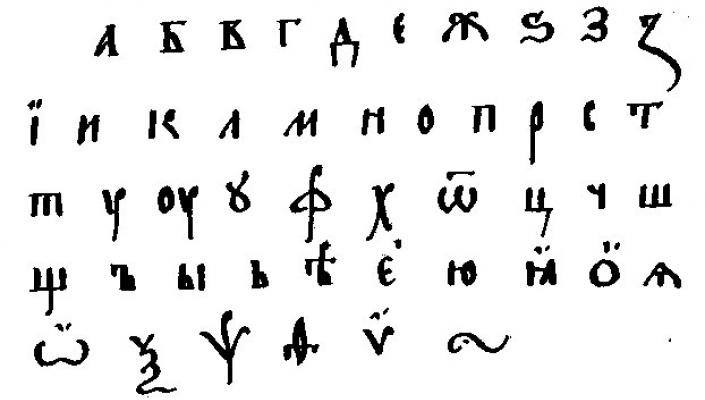 А Б В Г Д Є Ж Ѕ З Ꙁ
ї и к л м н о п р с т
т у оу ꙋ ф х ѿ ц ч ш
щ ъ ы ь ѣ є̇ ю ꙗ̈ ӧ ѧ
ѡ̈ ѯ ѱ ѳ ѵ̈ ~